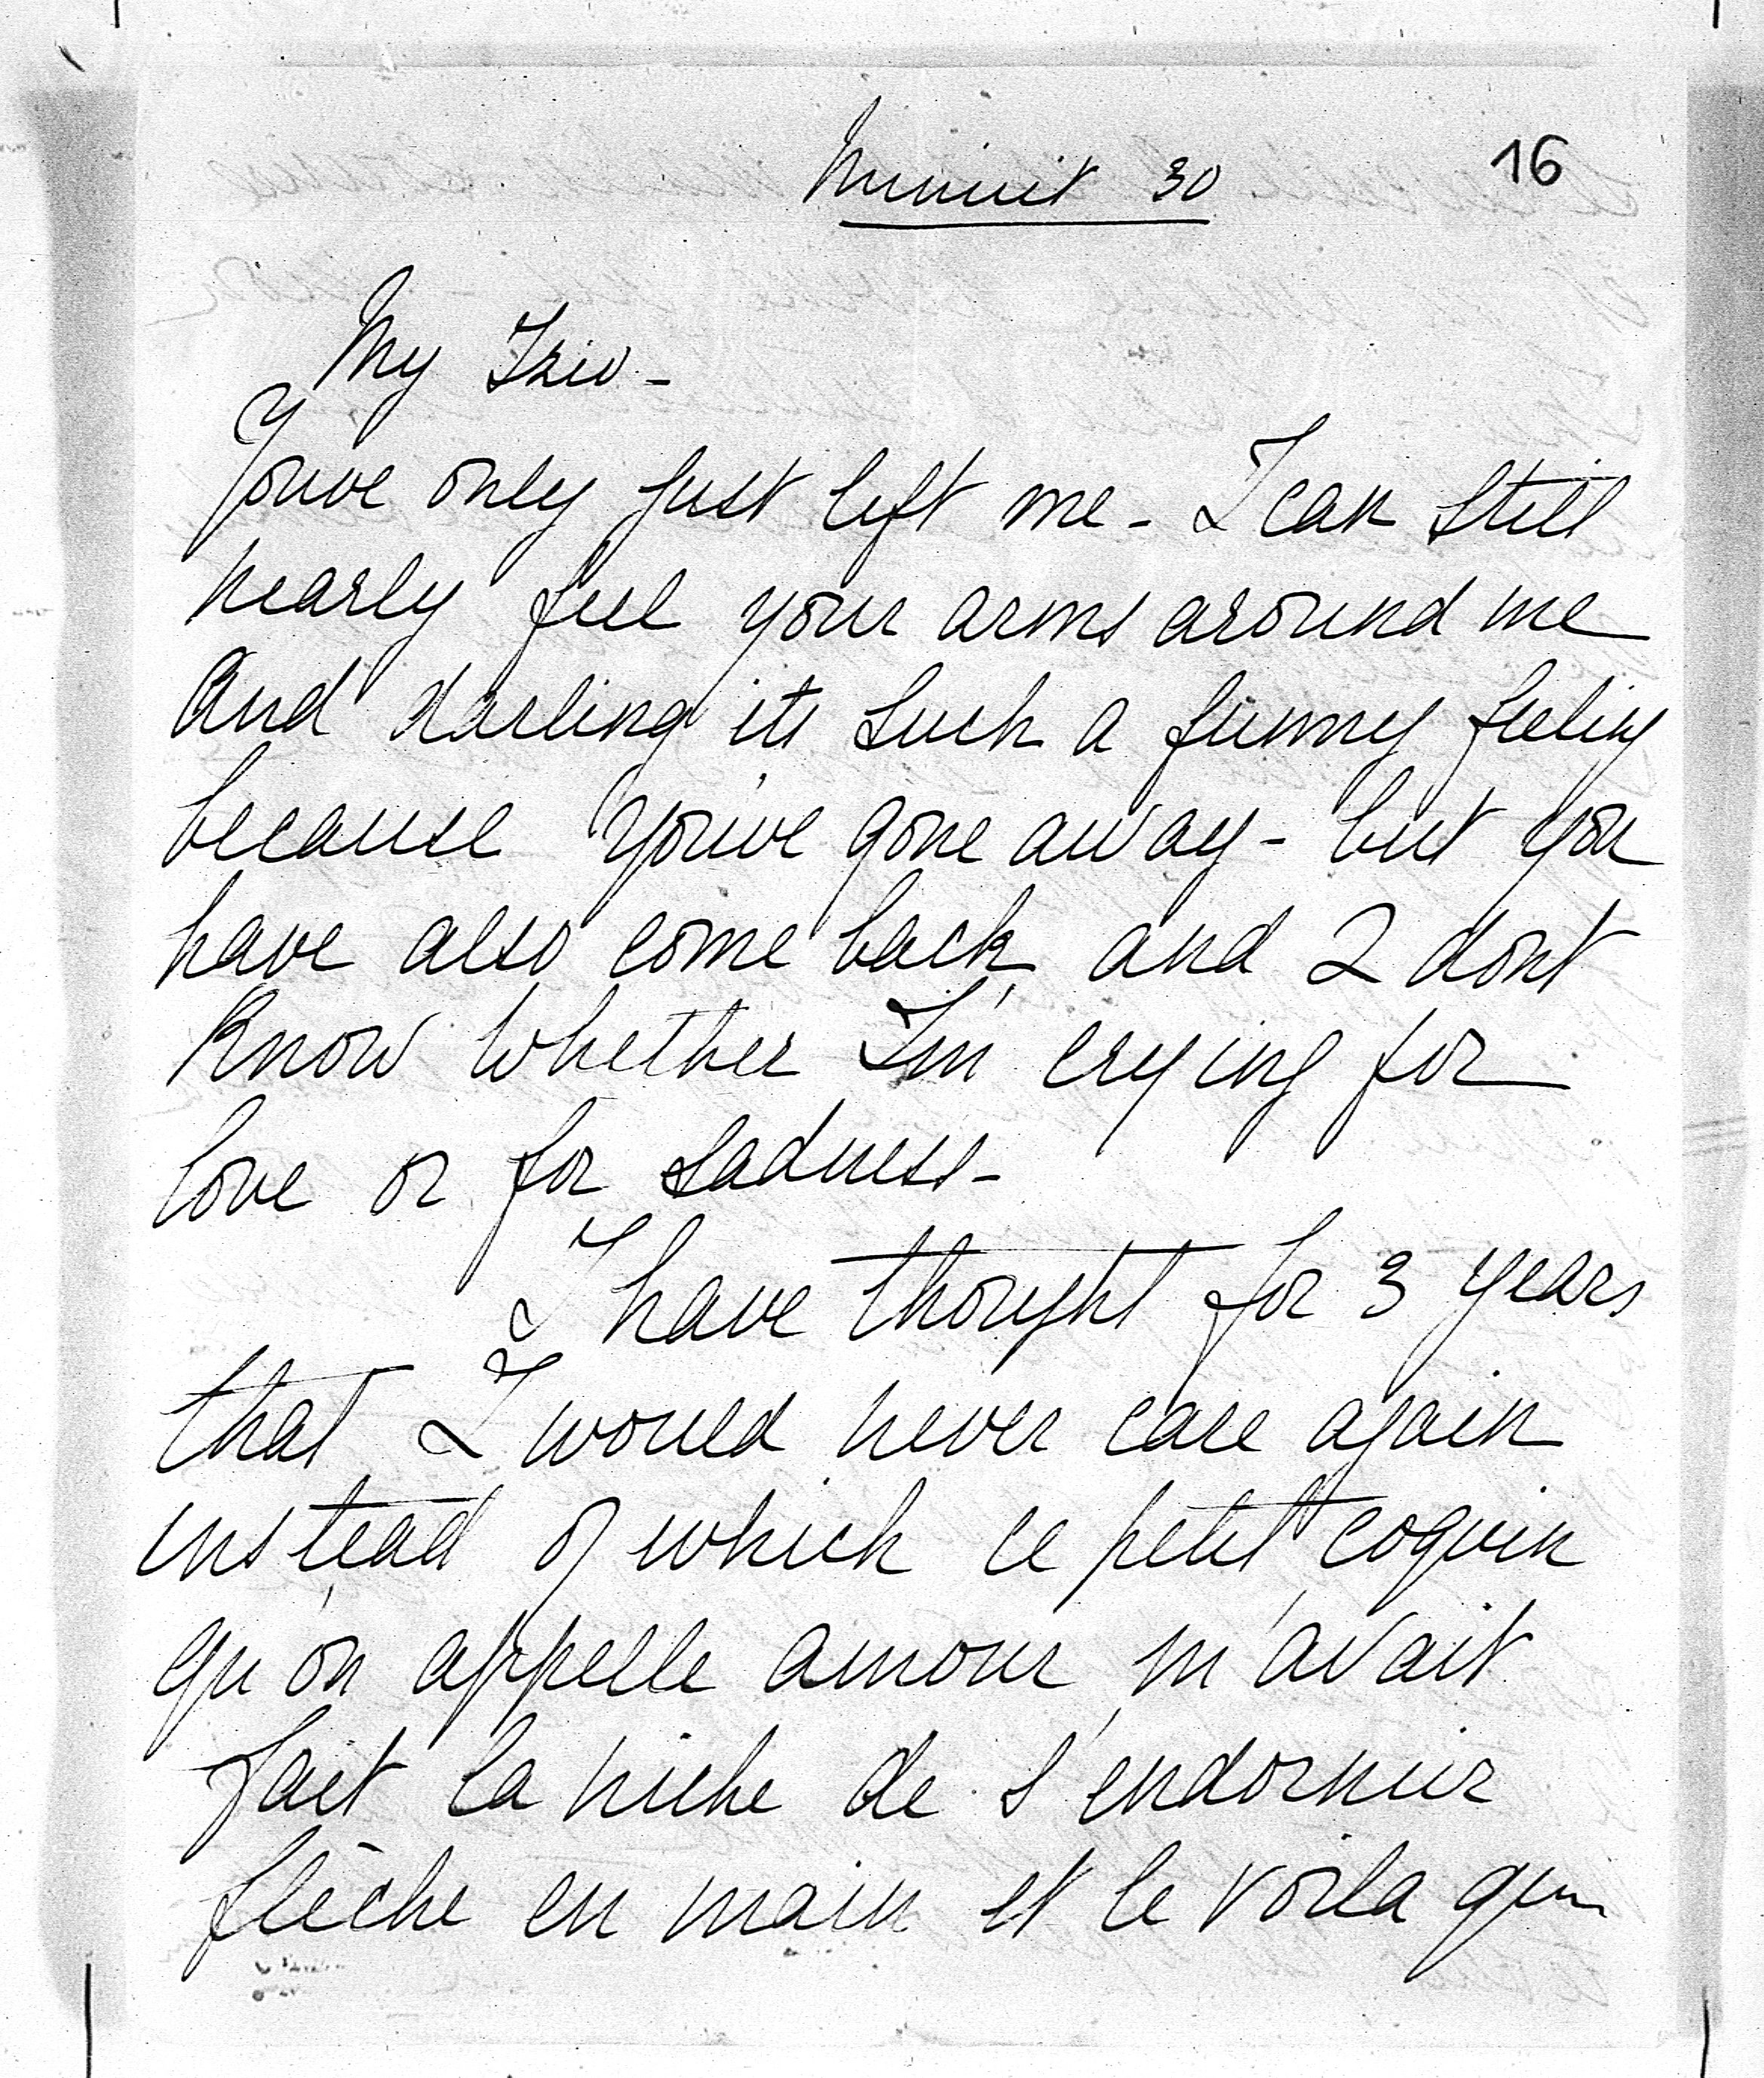 Minuit 30
16
My Izio -
You've only just left me - I can still
nearly feel your arms around me
And darling its such a funny feeling
because you've gone away - but you
have also come back, and I dont
Know whether I'm crying for
love or for sadness -
I have thought for 3 years
that I would never care again
instead of which ce petit coquin
qu'on appelle amour m'avait
fait la niche de s'endormir
flèche en main et le voila qui